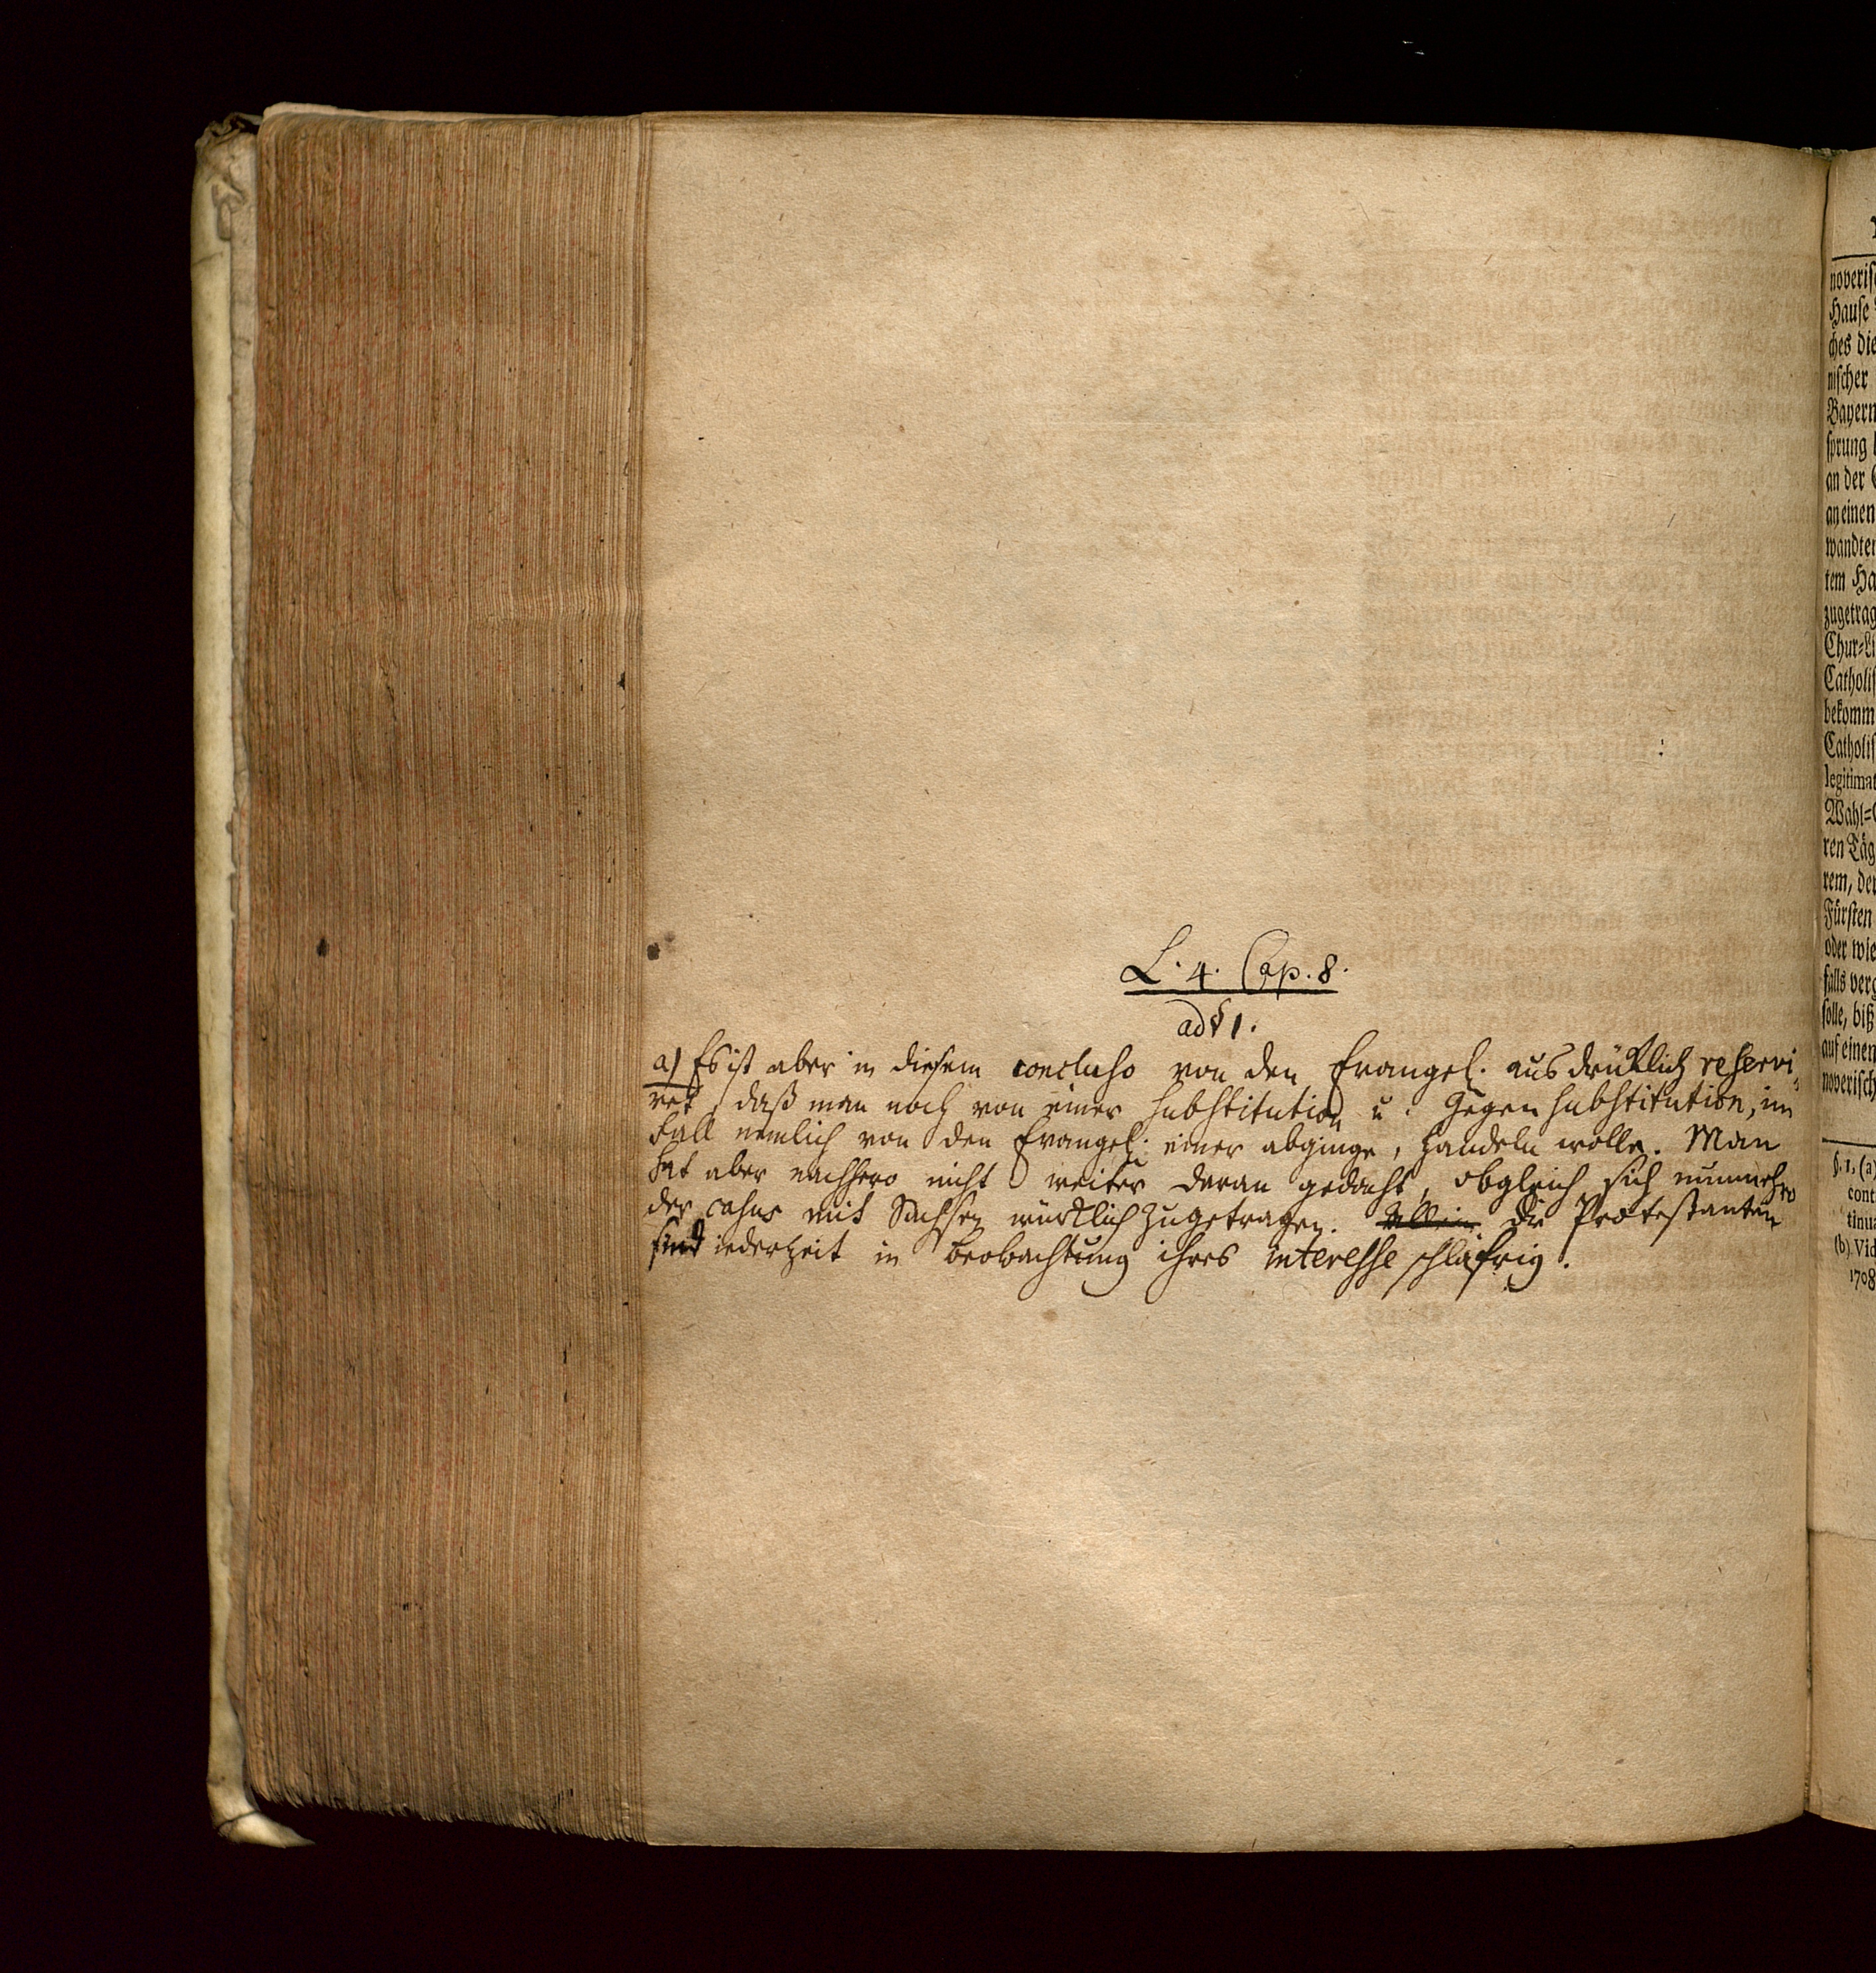 L. 4. Cap. 8.
ad § 1.
a) Es ist aber in diesem concluso von den Evangel. ausdrüklich reservi-
ret, daß man noch von einer substitution u. Gegensubstitution, im
Fall nemlich von den Evangel. einer abginge, handeln wolle. Man
hat aber nachhero nicht weiter daran gedacht, obgleich sich nunmehro
der casus mit Sachsen würklich zugetragen. Allein die Protestanten
sind iederzeit in beobachtung ihres interesse schläfrig.
noveris
Hause
ches die
nischer
Bayern
sprung
an der
an einen
wandten
tem Ha
zugetrag
Chur-Li
Catholis
bekomm
Catholis
legitimat
Wahl-
ren Täg
rem, der
Fürsten
oder wie
falls verg
solle, biß
auf einen
noverisch
§. 1. (a)
cont
tinu
(b) Vid
1708